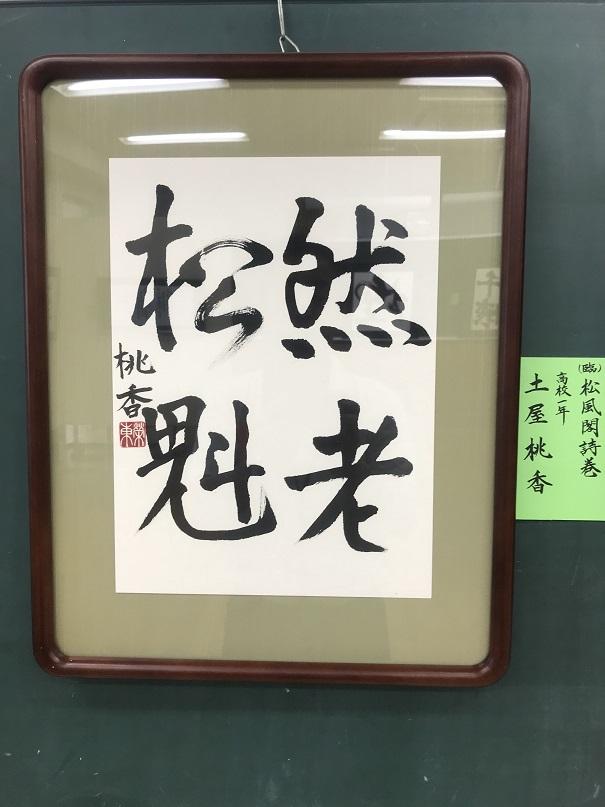 然老
松魁
桃香
(臨)松風閣詩巻
高校一年
土屋桃香